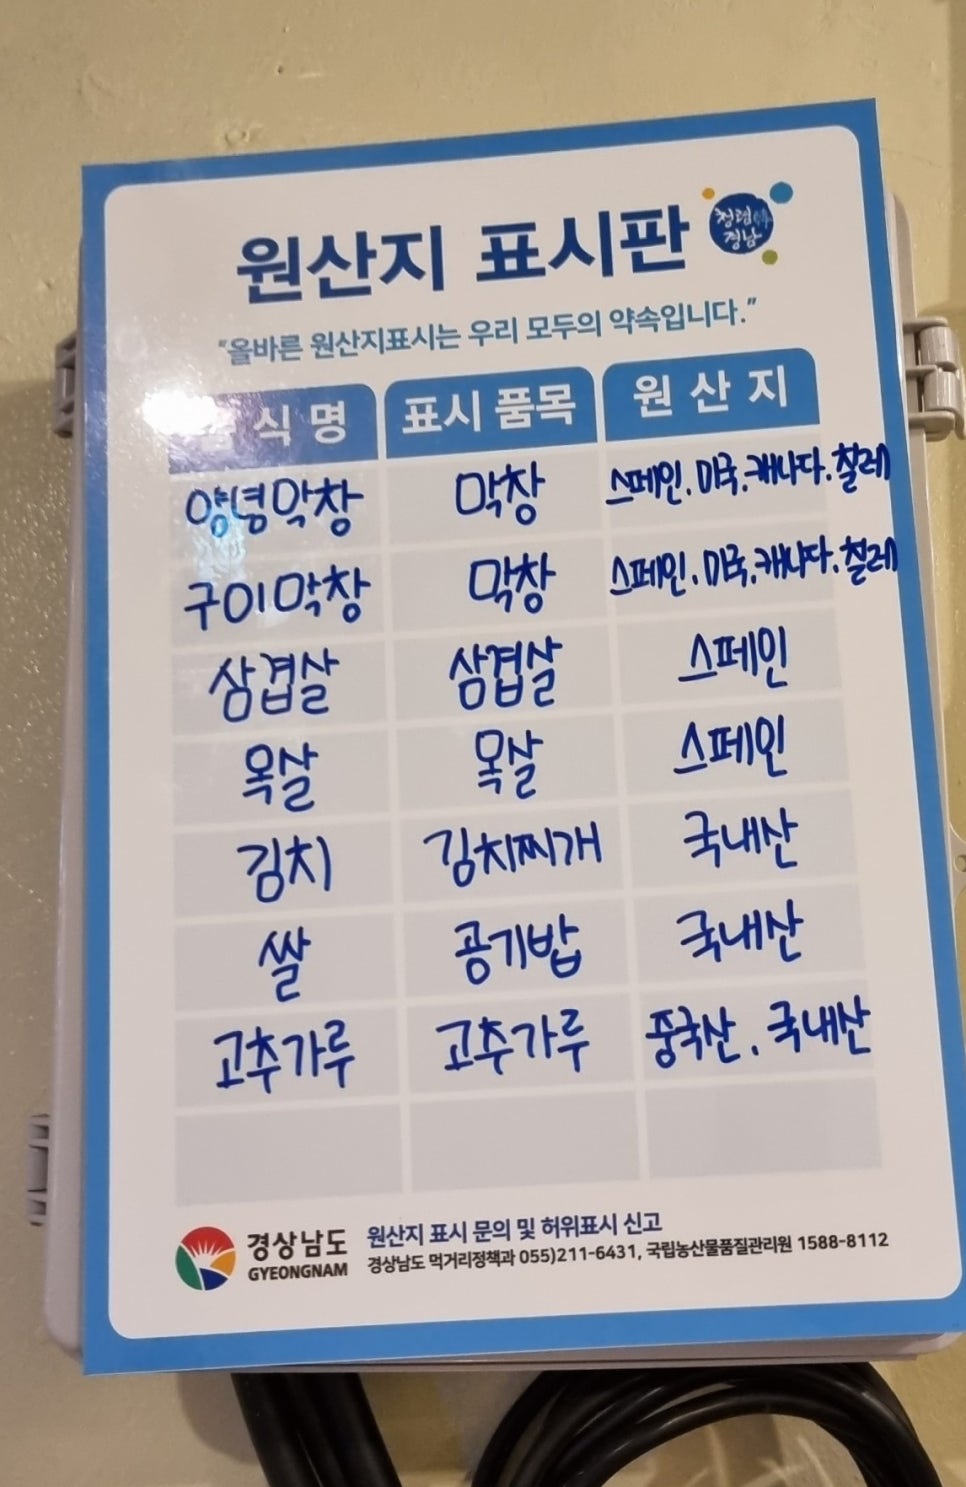 원산지 표시판
청렴 경남
"올바른 원산지표시는 우리 모두의 약속입니다."
식명 표시 품목 원산지
양념막창 막창 스페인.미국.캐나다.칠레
구이막창 막창 스페인.미국.캐나다.칠레
삼겹살 삼겹살 스페인
목살 목살 스페인
김치 김치찌개 국내산
쌀 공기밥 국내산
고추가루 고추가루 중국산. 국내산
경상남도
GYEONGNAM
원산지 표시 문의 및 허위표시 신고
경상남도 먹거리정책과 055)211-6431, 국립농산물품질관리원 1588-8112